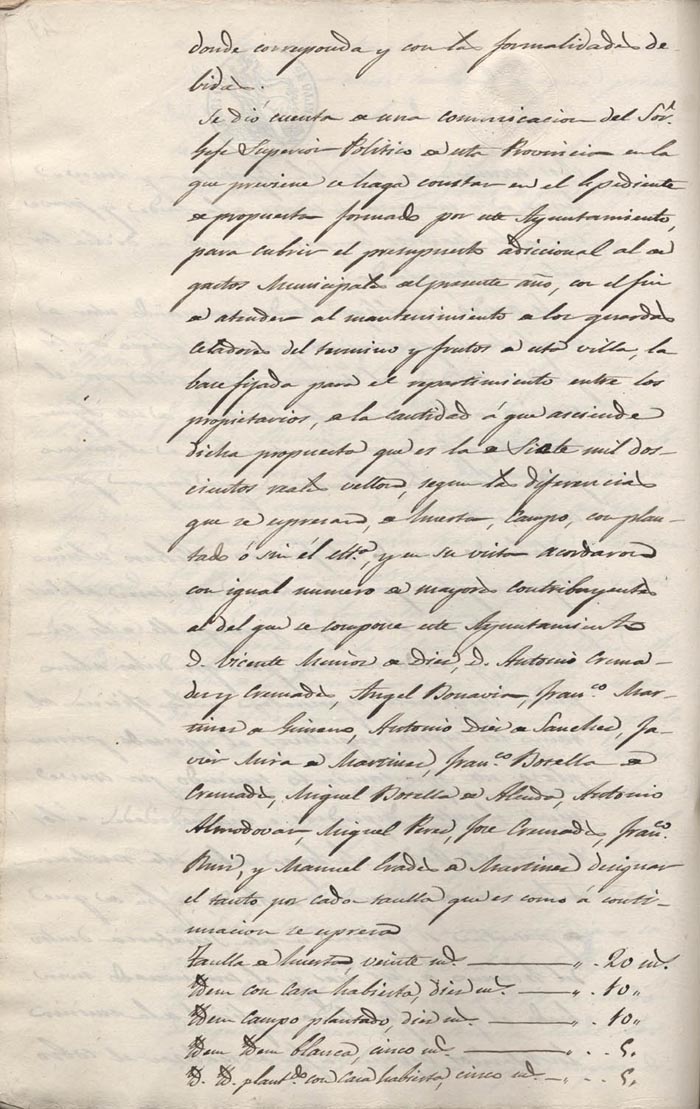 donde corresponda y con las formalidades de-
bidas.
Se dió cuenta de una comunicacion del Sor.
Gefe Superior Politico de esta Provincia en la
que previene se haga constar en el Espediente
de propuesta formado por este Ayuntamiento,
para cubrir el presupuesto adicional al de
gastos Municipales del presente año, con el fin
de atender al mantenimiento de los guardas
Celadores del termino y frutos de esta villa, la
base fijada para el repartimiento entre los
propietarios, de la cantidad á que asciende
dicha propuesta que es la de Siete mil dos-
cientos reales vellon, segun las diferencias
que se espresan, de huerta, Campo, con plan-
tado ó sin él etca., y en su vista acordaron
con igual numero de mayores contribuyentes
al del que se compone este Ayuntamiento
D. Vicente Muñoz de Diez, D. Antonio Crema-
des y Cremades, Angel Bonavia, Franco. Mar-
tinez de Gimeno, Antonio Diez de Sanchez, Ja-
vier Mira de Martinez, Franco. Botella de
Cremades, Miguel Botella de Alenda, Antonio
Almodovar, Miguel Perez, Jose Cremades, Franco.
y Manuel de Martinez designar
el tanto por cada taulla que es como á conti-
nuacion se espresa
Taulla de huerta, veinte ms. " . 20 ms.
Idem con casa habierta, diez ms. " . 10 "
Idem Campo plantado, diez ms. " . 10 "
Idem Idem blanca, cinco ms. " . . 5 "
Id. Id. plantdo. con Casa habierta, cinco ms. " . . 5 "